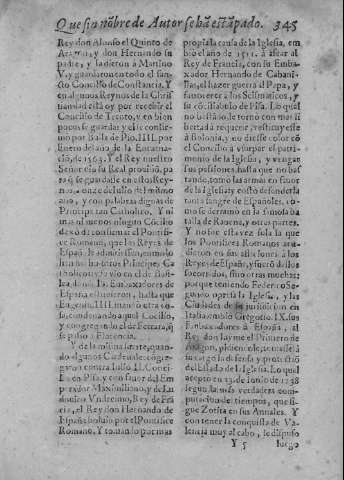 Que sin nõbre de Autor se hã estãpado. 345
Rey don Alonso el Quinto de
Aragon, y don Hernando su
padre, y la dieron à Martino
V. y guardaron en todo el san-
cto Concilio de Constancia. Y
en algunos Reynos de la Chris
tiandad està oy por recebir el
Concilio de Trento, y en bien
pocos se guarda: y el se confir-
mò por Bulla de Pio IIII. por
Enero del año de la Encarna-
ciõ, de 1563. Y el Rey nuestro
Señor diò su Real provisiõ, pa
ra q̃ se guardasse en estos Rey-
nos, a onze de Iulio del mismo
año, y con palabras dignas de
Principe tan Catholico. Y ni
mas ni menos ningun Cõcilio
de se confirmasse el Pontifi-
ce Romano, que los Reyes de
España le admitiessen, como lo
han hecho otros Principes Ca
tholicos: y se viò en el de Basi-
lea, donde Embaxadores de
España estuvieron, hasta que
Eugenio IIII. mandò otra co-
sa, condenando aquel Cõcilio,
y congregando el de Ferrara, q̃
se passò a Florencia.
Y de la misma suerte, quan-
do algunos Cardenales cõgre-
garon contra Iulio II. Conci-
lio en Pisa, y con favor del Em
perador Maximiliano, y de Lu
dovico Vndecimo, Rey de Frã
cia, el Rey don Hernando de
España bolviò por el Põtifice
Romano. Y tomando por mas
propia la causa de la Iglesia, em
biò en el año de 1511. à assear al
Rey de Francia, con su Emba-
xador Hernando de Cabani-
llas, el hazer guerra al Papa, y
favorecer a los Scismaticos, y
su cõciliabulo de Pisa. Lo qual
no bastando, le tornò con mas li
bertad à requerir, restituyesse
à Bolonia, y no diesse color cõ
el Concilio à vsurpar el patri-
monio de la Iglesia, y vengar
sus passiones, hasta que no bas-
tando, tomò las armas en favor
de la Iglesia, y costò defenderla
tanta sangre de Españoles, co-
mo se derramò en la famosa ba
talla de Ravena, y otras partes.
Y no fue esta vez sola la que
los Pontifices Romanos acu-
dieron en sus afliciones à los
Reyes de España, y fuerõ dellos
socorridos, sino otras muchas:
porque teniendo Federico Se-
gundo opressa la Iglesia, y las
Ciudades de su jurisdicion en
Italia, embiò Gregorio IX. sus
Embaxadores à España, al
Rey don Iayme el Primero de
Aragon, pidiendole, tomasse à
su cargo la defensa y protectiõ
del Estado de la Iglesia. Lo qual
acepto en 13. de Iunio de 1238
segun la mas verdadera com-
putacion de tiempos, que si-
gue Zorita en sus Annales. Y
con tener la conquista de Va-
lencia muy al cabo, se dispuso
Y 5 luego